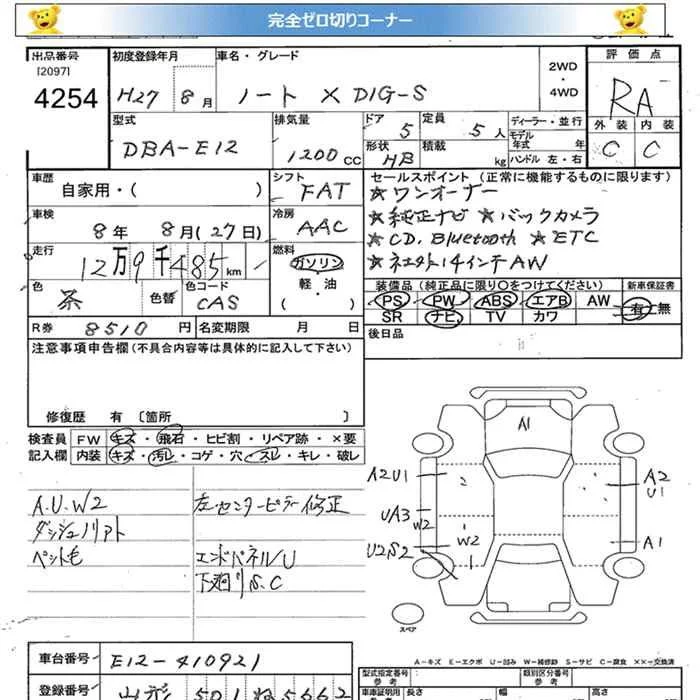 完全ゼロ切りコーナー
出品番号 初度登録年月 車名・グレード 2WD・4WD 評価点
[2097]
4254 H27 8月 ノート X DIG-S RA
型式 排気量 ドア 定員 ディーラー・並行 外装 内装
DBA-E12 1200cc 5 5人 モデル年式 年 C C
形状 積載
HB kg ハンドル 左・右
車歴 シフト セールスポイント (正常に機能するものに限ります)
自家用・( ) FAT ☆ワンオーナー
車検 冷房 ☆純正ナビ ☆バックカメラ
8年 8月(27日) AAC ☆CD. Bluetooth ☆ETC
走行 燃料
12万9千485km ガソリン 14インチAW
色 色替 色コード 軽・油 装備品 (純正品に限り○をつけてください) 新車保証書
茶 CAS ( ) PS PW ABS エアB AW 有・無
SR ナビ TV カワ
R券 8510円 名変期限 月 日 後日品
注意事項申告欄 (不具合内容等は具体的に記入して下さい)
修復歴 有 〔箇所 〕
検査員 FW キズ・飛石・ヒビ割・リペア跡・×要
記入欄 内装 キズ・汚レ・コゲ・穴・スレ・キレ・破レ
A.U.W2 左センターピラー修正
ペット毛 エンドパネルU
下廻りS.C
A1
A2U1 A2
U1
UA3
W2
W2 A1
U2S2
スペア
A-キズ E-エクボ U-凹み W-補修跡 S-サビ C-腐食 ××-交換済
車台番号 E12-410921 型式指定番号 類別区分番号
参考 参考
登録番号 山形 501 ね5662 車庫証明用 長さ 幅 高さ
参考